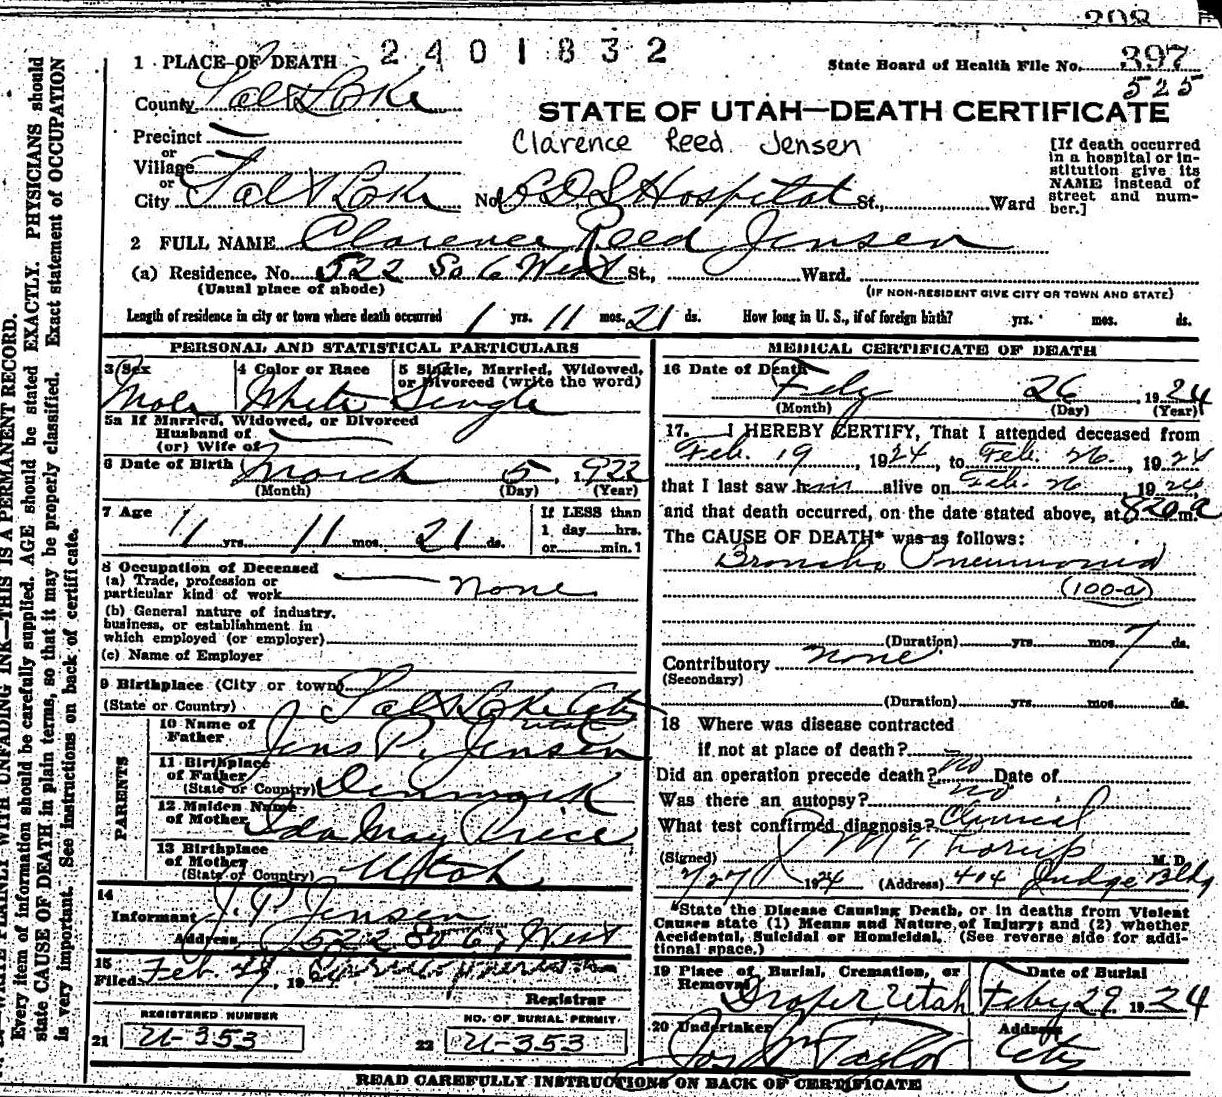 208
2401832
1 PLACE OF DEATH
State Board of Health File No. 397
525
County Salt Lake
STATE OF UTAH—DEATH CERTIFICATE
Precinct
Clarence Reed Jensen
or
Village
or
City Salt Lake No. L.D.S Hospital St., Ward
[If death occurred
in a hospital or in-
stitution give its
NAME instead of
street and num-
ber.]
2 FULL NAME Clarence Reed Jensen
(a) Residence. No. 522 So 6 West St., Ward.
(Usual place of abode)
(IF NON-RESIDENT GIVE CITY OR TOWN AND STATE)
Length of residence in city or town where death occurred 1 yrs. 11 mos. 21 ds. How long in U. S., if of foreign birth? yrs. mos. ds.
PERSONAL AND STATISTICAL PARTICULARS
3 Sex
Male
4 Color or Race
White
5 Single, Married, Widowed,
or Divorced (write the word)
Single
5a If Married, Widowed, or Divorced
Husband of
(or) Wife of
6 Date of Birth March 5, 1922
(Month) (Day) (Year)
7 Age
1 yrs. 11 mos. 21 ds.
If LESS than
1 day hrs.
or min.
8 Occupation of Deceased
(a) Trade, profession or
particular kind of work none
(b) General nature of industry,
business, or establishment in
which employed (or employer)
(c) Name of Employer
9 Birthplace (City or town)
(State or Country) Salt Lake City
Utah
PARENTS
10 Name of
Father Jens P. Jensen
11 Birthplace
of Father
(State or Country) Denmark
12 Maiden Name
of Mother Ida May Price
13 Birthplace
of Mother
(State or Country) Utah
14
Informant J. P. Jensen
Address 522 So 6 West
15
Filed Feb. 29, 1924
Registrar
REGISTERED NUMBER
21 U-353
NO. OF BURIAL PERMIT
22 U-353
MEDICAL CERTIFICATE OF DEATH
16 Date of Death
Feby 26 1924
(Month) (Day) (Year)
17. I HEREBY CERTIFY, That I attended deceased from
Feb. 19, 1924, to Feb. 26, 1924
that I last saw him alive on Feb. 26 1924
and that death occurred, on the date stated above, at 820 a m.
The CAUSE OF DEATH* was as follows:
Broncho Pneumonia
(100-a)
(Duration) yrs. mos. 7 ds.
Contributory none
(Secondary)
(Duration) yrs. mos. ds.
18 Where was disease contracted
if not at place of death?
Did an operation precede death? no Date of
Was there an autopsy? no
What test confirmed diagnosis? Clinical
(Signed) Thorup M. D.
2/27 1924 (Address) 404 Judge Bldg
*State the Disease Causing Death, or in deaths from Violent
Causes state (1) Means and Nature of Injury; and (2) whether
Accidental, Suicidal or Homicidal. (See reverse side for addi-
tional space.)
19 Place of Burial, Cremation, or
Removal
Draper Utah
Date of Burial
Feby 29 1924
20 Undertaker
Jos Wm Taylor
Address
City
READ CAREFULLY INSTRUCTIONS ON BACK OF CERTIFICATE
WRITE PLAINLY WITH UNFADING INK—THIS IS A PERMANENT RECORD.
Every item of information should be carefully supplied. AGE should be stated EXACTLY. PHYSICIANS should
state CAUSE OF DEATH in plain terms, so that it may be properly classified. Exact statement of OCCUPATION
is very important. See instructions on back of certificate.